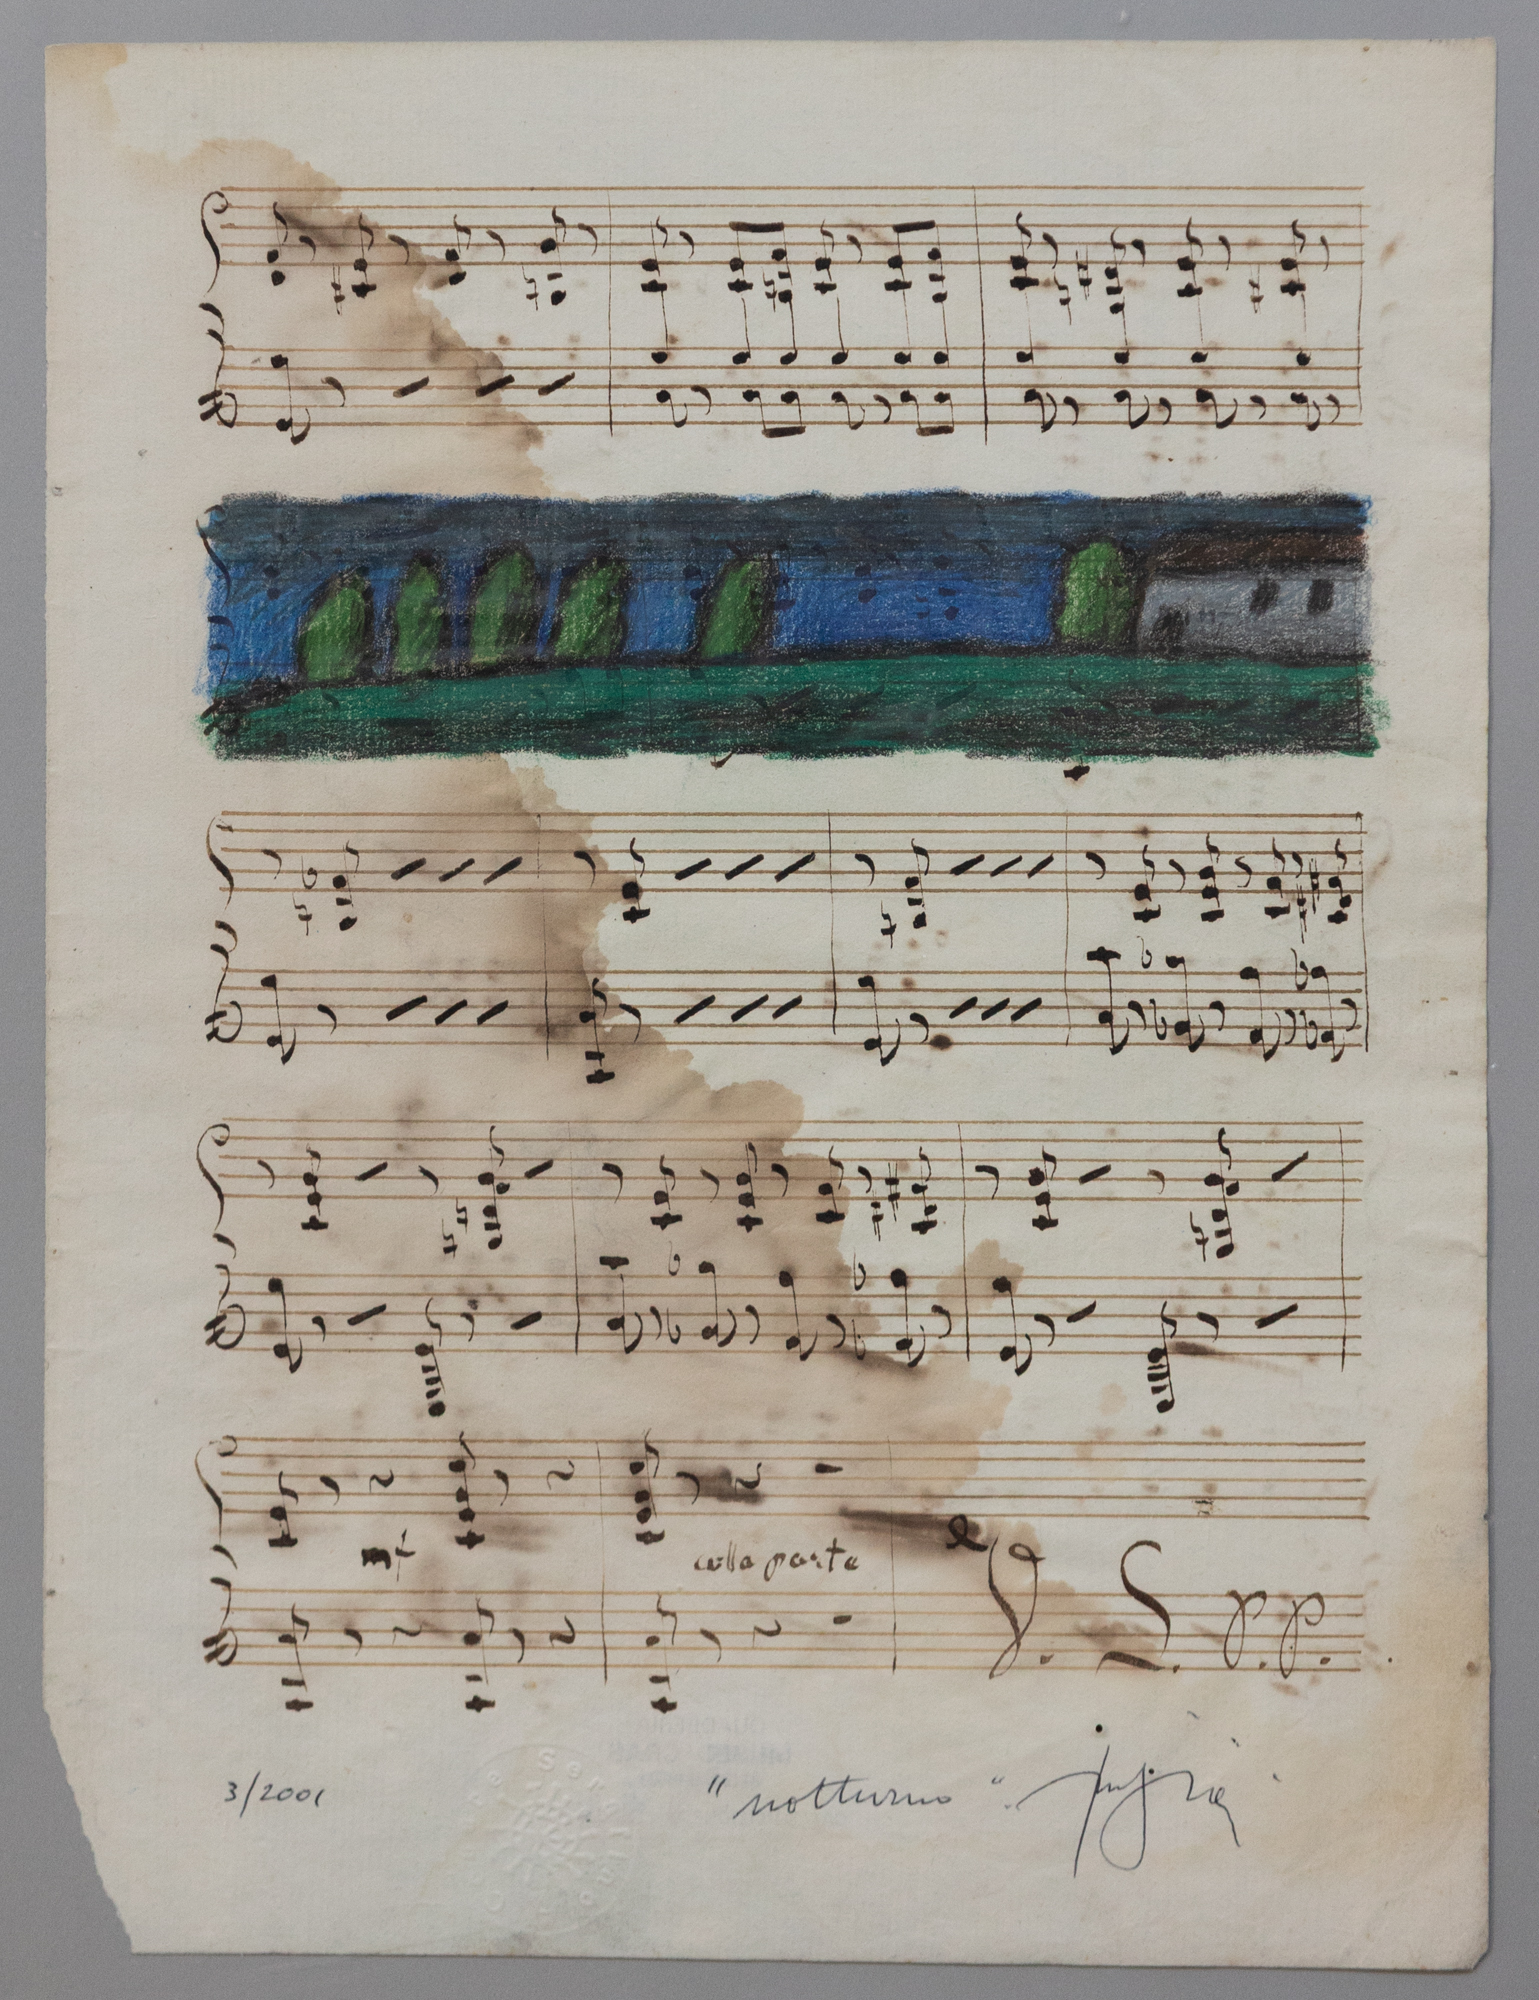 mf
colla parte
V. S. p. p.
3/2001 "notturno"